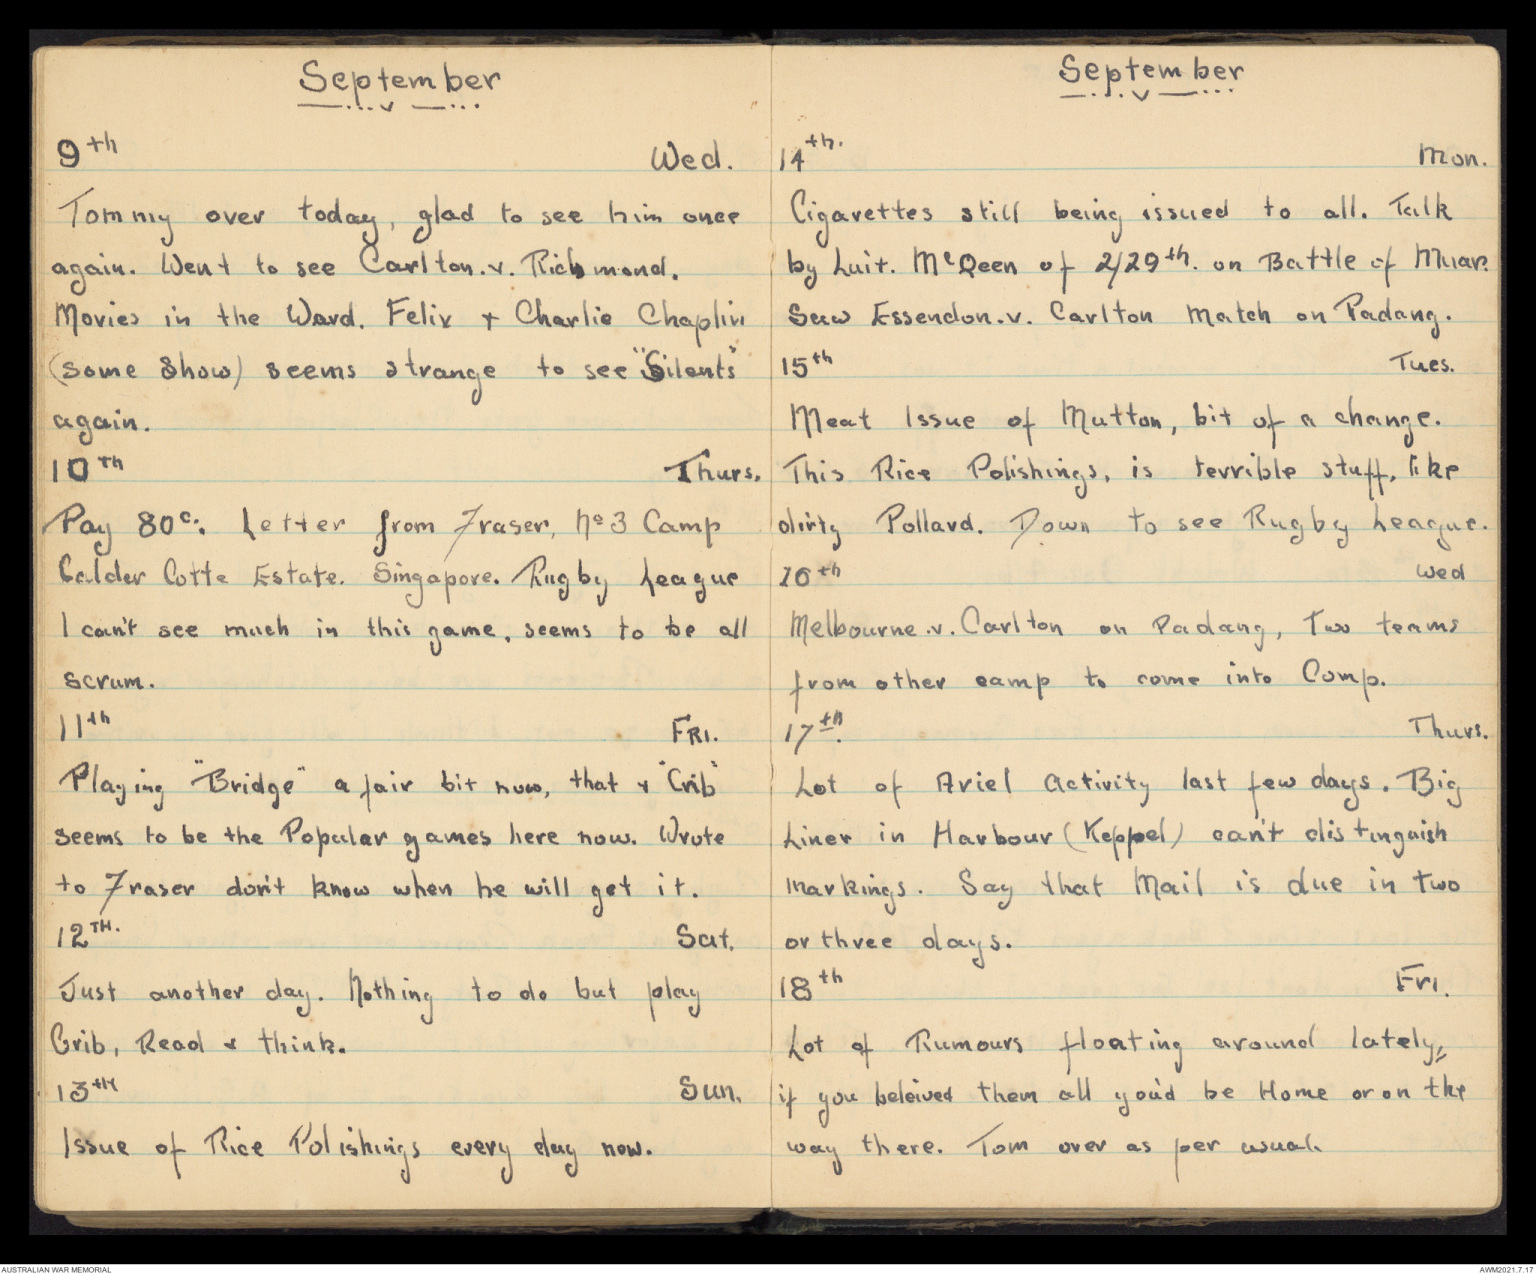 September
9th Wed.
Tommy over today, glad to see him once
again. Went to see Carlton.v. Richmond.
Movies in the Ward. Felix + Charlie Chaplin
(some show) seems strange to see "Silents"
again.
10th Thurs.
Pay 80c. Letter from Fraser, No 3 Camp
Calder Cotte Estate. Singapore. Rugby League
I can't see much in this game, seems to be all
scrum.
11th FRI.
Playing "Bridge" a fair bit now, that & "Crib"
seems to be the Popular games here now. Wrote
to Fraser don't know when he will get it.
12TH. Sat.
Just another day. Nothing to do but play
Crib, Read & think.
13th Sun.
Issue of Rice Polishings every day now.
September
14th. Mon.
Cigarettes still being issued to all. Talk
by Luit. McQeen of 2/29th. on Battle of Muar.
Saw Essendon.v. Carlton Match on Padang.
15th Tues.
Meat Issue of Mutton, bit of a change.
This Rice Polishings, is terrible stuff, like
dirty Pollard. Down to see Rugby League.
16th Wed
Melbourne.v. Carlton on Padang, Two teams
from other camp to come into Comp.
17th. Thurs.
Lot of Ariel Activity last few days. Big
Liner in Harbour (Keppel) can't distinguish
markings. Say that Mail is due in two
or three days.
18th Fri.
Lot of Rumours floating around lately,
if you beleived them all you'd be Home or on the
way there. Tom over as per usual.
AUSTRALIAN WAR MEMORIAL
AWM2021.7.17